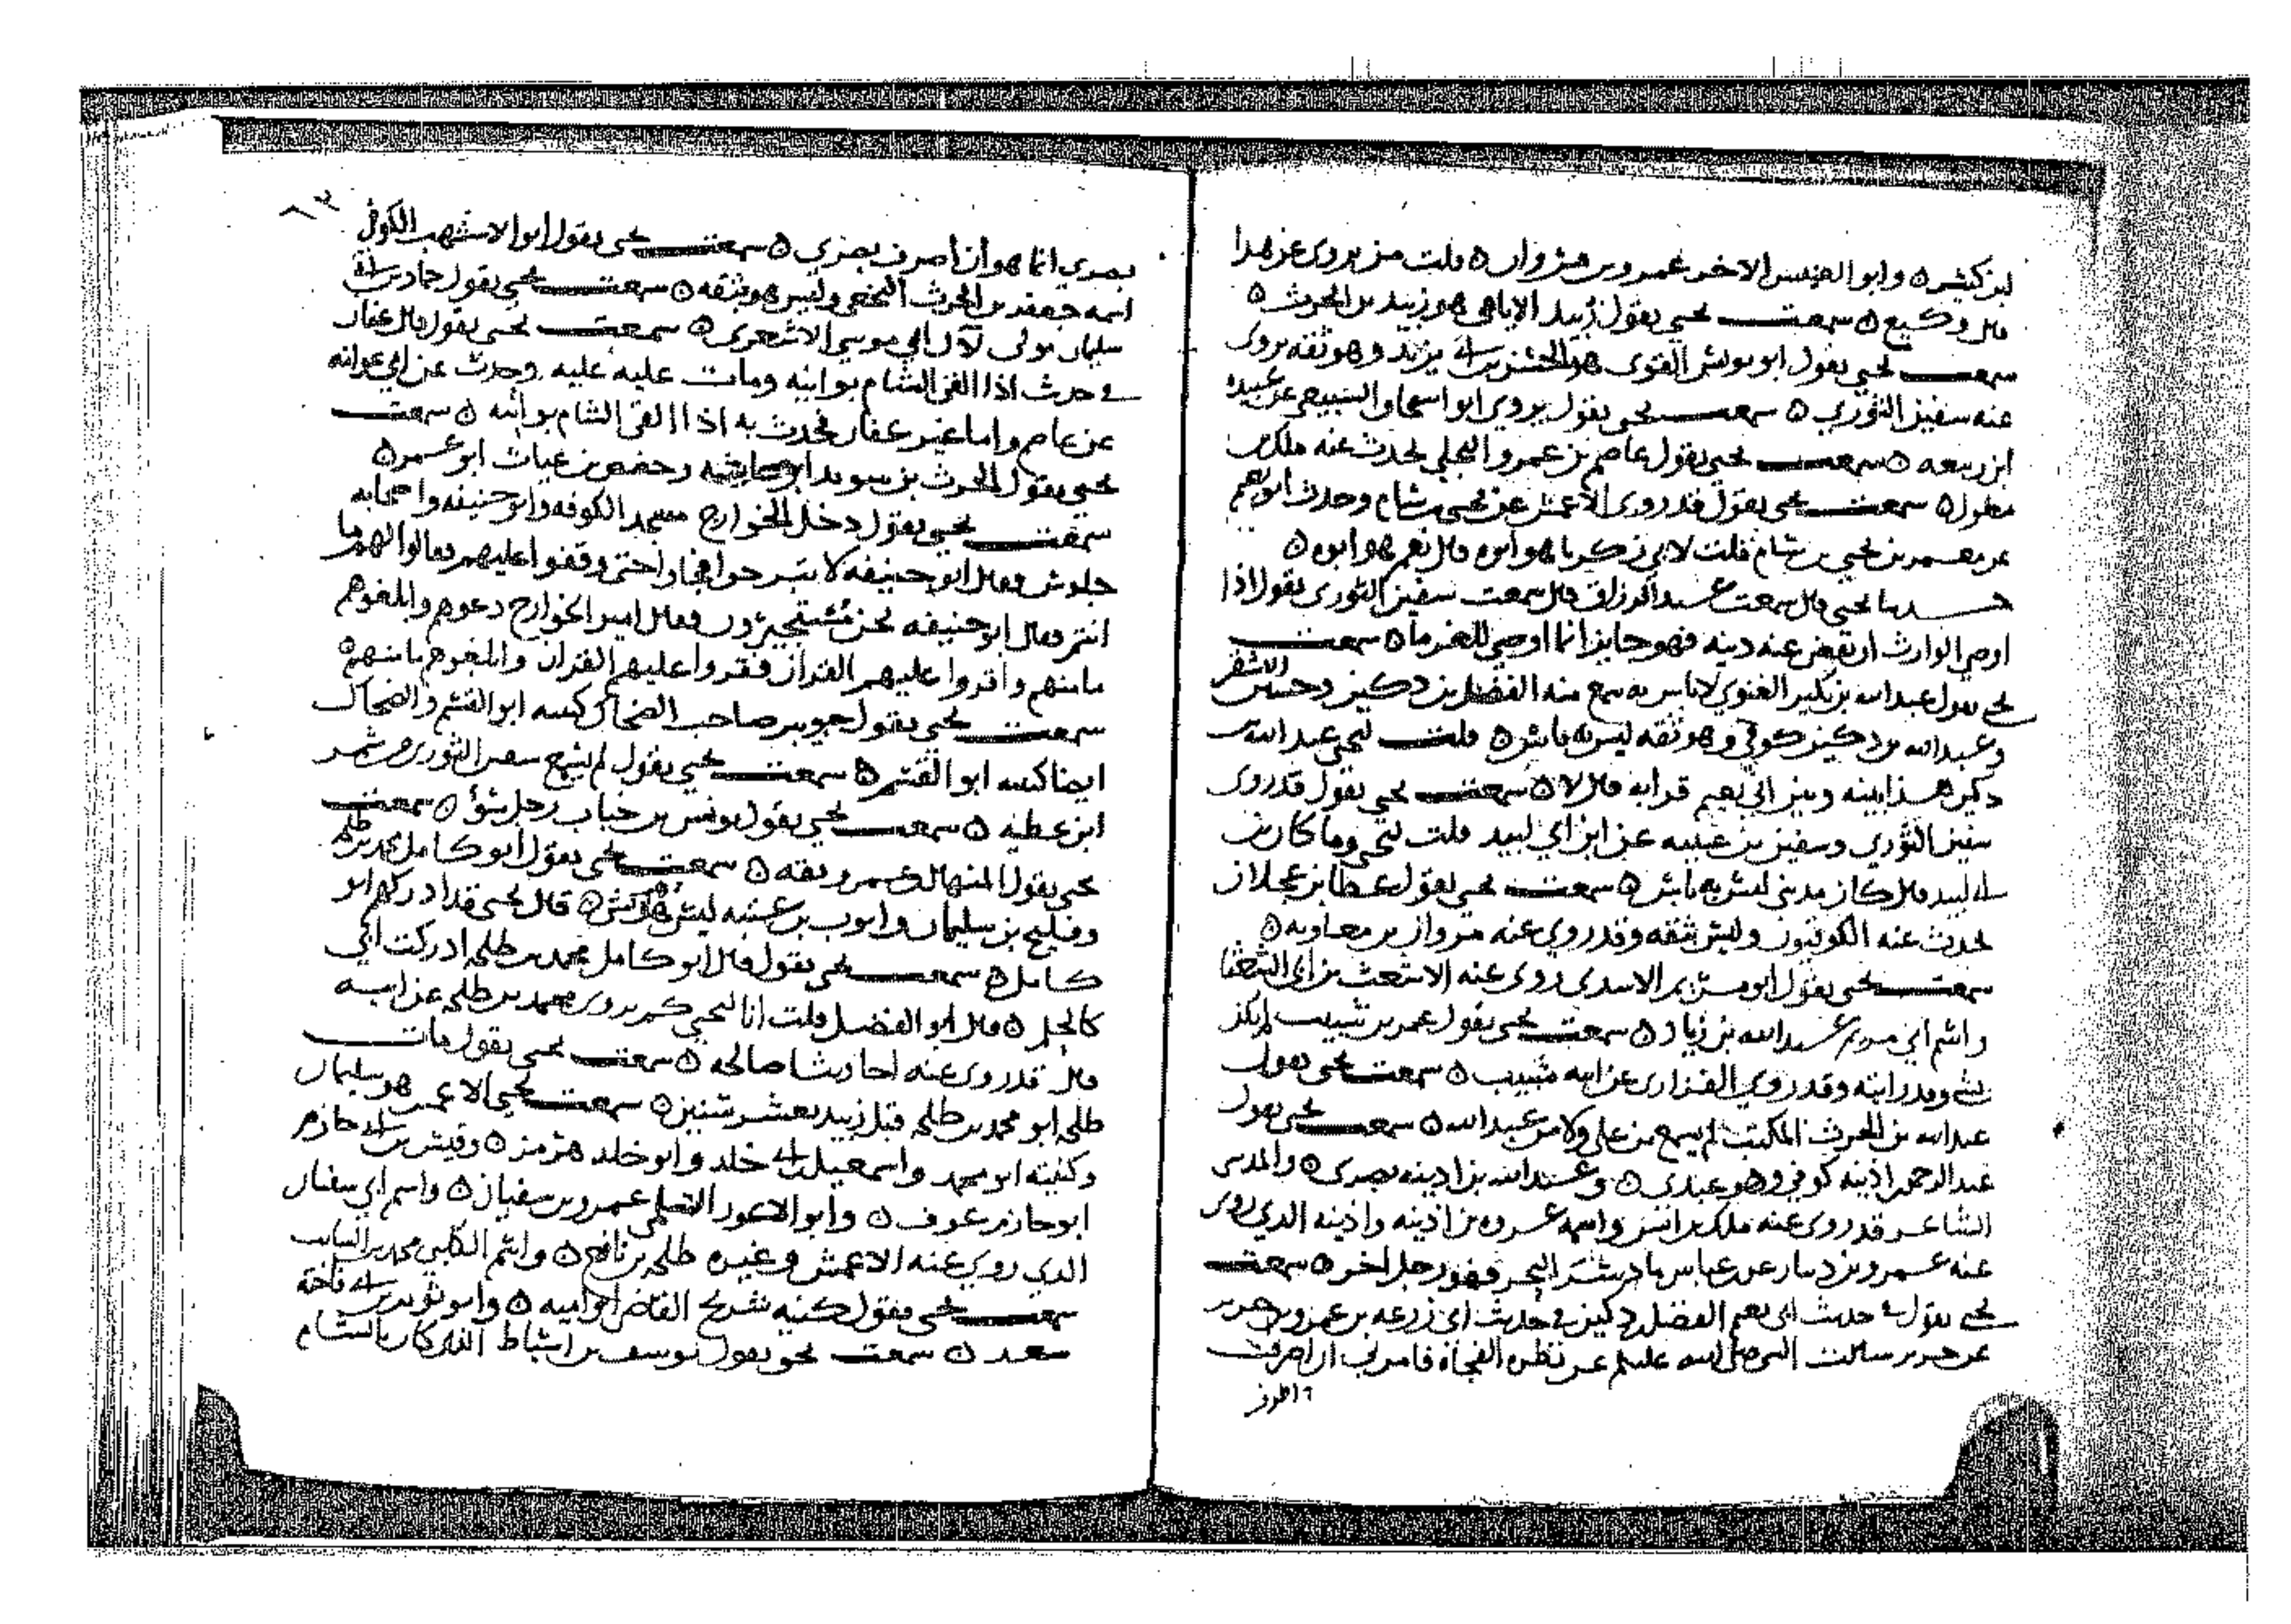 ابن كثير ٥ وابو العنبس الاخر عمرو بن مروان ٥ قلت من يروي عن هذا
قال وكيع ٥ سمعت يحيى يقول زبيد الايامي هو زبيد بن الحرث ٥
سمعت يحيى يقول ابو يونس القوي هو الحسن بن يزيد وهو ثقه يروي
عنه سفين الثوري ٥ سمعت يحيى يقول يروي ابو اسحاق السبيعي عن عبيده
ابن ربيعه ٥ سمعت يحيى يقول عاصم بن عمرو البجلي يحدث عنه ملك بن
مغول ٥ سمعت يحيى يقول قد روى الاعمش عن يحيى بن سام وحدث ابرهيم
عن معمر بن يحيى بن سام قلت لابي زكريا هو ابوه قال نعم هو ابوه ٥
حدثنا يحيى قال سمعت عبد الرزاق قال سمعت سفين الثوري يقول اذا
اوصى الوارث ان يقضى عنه دينه فهو جايز انما اوصي للغرما ٥ سمعت
يحيى يقول عبدالله بن بكير الغنوي لا باس به سمع منه الفضل بن دكين وحسين الاشقر
وعبدالله بن دكين كوفي وهو ثقه ليس به باس ٥ قلت ليحيى عبد الله بن
دكين هذا بينه وبين ابي نعيم قرابه قال لا ٥ سمعت يحيى يقول قد روى
سفين الثوري وسفين بن عيينه عن ابن ابي لبيد قلت ليحيى وما كان ابن
ابي لبيد قال كان مدني ليس به باس ٥ سمعت يحيى يقول عطا بن عجلان
يحدث عنه الكوفيون وليس بثقه وقد روى عنه مروان بن معاويه ٥
سمعت يحيى يقول ابو مريم الاسدي روى عنه الاشعث بن ابي الشعثا
واسم ابي مريم عبد الله بن زياد ٥ سمعت يحيى يقول عمر بن شبيب لم يكن
بشي وقد رايته وقد روى الفزاري عن ابيه شبيب ٥ سمعت يحيى يقول
عبدالله بن الحرث المكتب لم يسمع من علي ولا من عبد الله ٥ سمعت يحيى يقول
عبد الرحمن اذينه كوفي وهو عبدي ٥ وعبد الله بن اذينه بصري ٥ والمدني
الشاعر قد روى عنه ملك بن انس واسمه عروه بن اذينه واذينه الذي روى
عنه عمرو بن دينار عن ابن عباس ما دسر البحر فهو رجل اخر ٥ سمعت
يحيى يقول في حديث ابي نعيم الفضل بن دكين في حديث ابي زرعه بن عمرو بن جرير
عن جرير سالت النبي صلى الله عليه وسلم عن نظره الفجاة فامرني ان اصرف
بصري انما هو ان اصرف بصري ٥ سمعت يحيى يقول ابو الاشهب الكوفي
اسمه جعفر بن الحرث النخعي وليس هو بثقه ٥ سمعت يحيى يقول حماد بن ابي
سليمان مولى لآل ابي موسى الاشعري ٥ سمعت يحيى يقول قال عفان
في حديث اذا القى الشام بوانيه ومات عليه عليه وحدث عن ابي عوانه
عن عاصم واما غير عفان يحدث به اذا القى الشام بوانيه ٥ سمعت
يحيى يقول الحرث بن سويد ابو عايشه وحفص بن غياث ابو عمر ٥
سمعت يحيى يقول دخل الخوارج مسجد الكوفه وابو حنيفه واصحابه
جلوس فقال ابو حنيفه لا تبرحوا فجاوا حتى وقفوا عليهم فقالوا لهم ما
انتم فقال ابو حنيفه نحن مستجيرون فقال امير الخوارج دعوهم وابلغوهم
مامنهم واقروا عليهم القران فقروا عليهم القران وابلغوهم مامنهم ٥
سمعت يحيى يقول جويبر صاحب الضحاك كنيته ابو القسم والضحاك
ايضا كنيته ابو القسم ٥ سمعت يحيى يقول لم يسمع سفين الثوري من شمر
ابن عطيه ٥ سمعت يحيى يقول يونس بن خباب رجل سوء ٥ سمعت
يحيى يقول المنهال بن عمرو ثقه ٥ سمعت يحيى يقول ابو كامل محمد بن طلحه
وفليح بن سليمان وايوب بن عتبه ليس هم بشي ٥ قال يحيى قد ادركهم ابو
كامل ٥ سمعت يحيى يقول قال ابو كامل محمد بن طلحه ادركت ابي
كالحلم ٥ قال ابو الفضل قلت انا ليحيى كم يروي محمد بن طلحه عن ابيه
قال قد روى عنه احاديثا صالحه ٥ سمعت يحيى يقول مات
طلحه ابو محمد بن طلحه قبل زبيد بعشر سنين ٥ سمعت يحيى الاعمش هو سليمان
وكنيته ابو محمد واسمعيل بن ابي خلد وابو خلد هرمز ٥ وقيس بن ابي حازم
ابو حازم عوف ٥ وابو الاعور السلمي عمرو بن سفيان ٥ واسم ابي سفيان
الذي روى عنه الاعمش وغيره طلحه بن نافع ٥ واسم الكلبي محمد بن السايب
سمعت يحيى يقول كنيه شريح القاضي ابو اميه ٥ وابو ثوير بن ابي فاخته
سعد ٥ سمعت يحيى يقول يوسف بن اسباط الذي كان بالشام